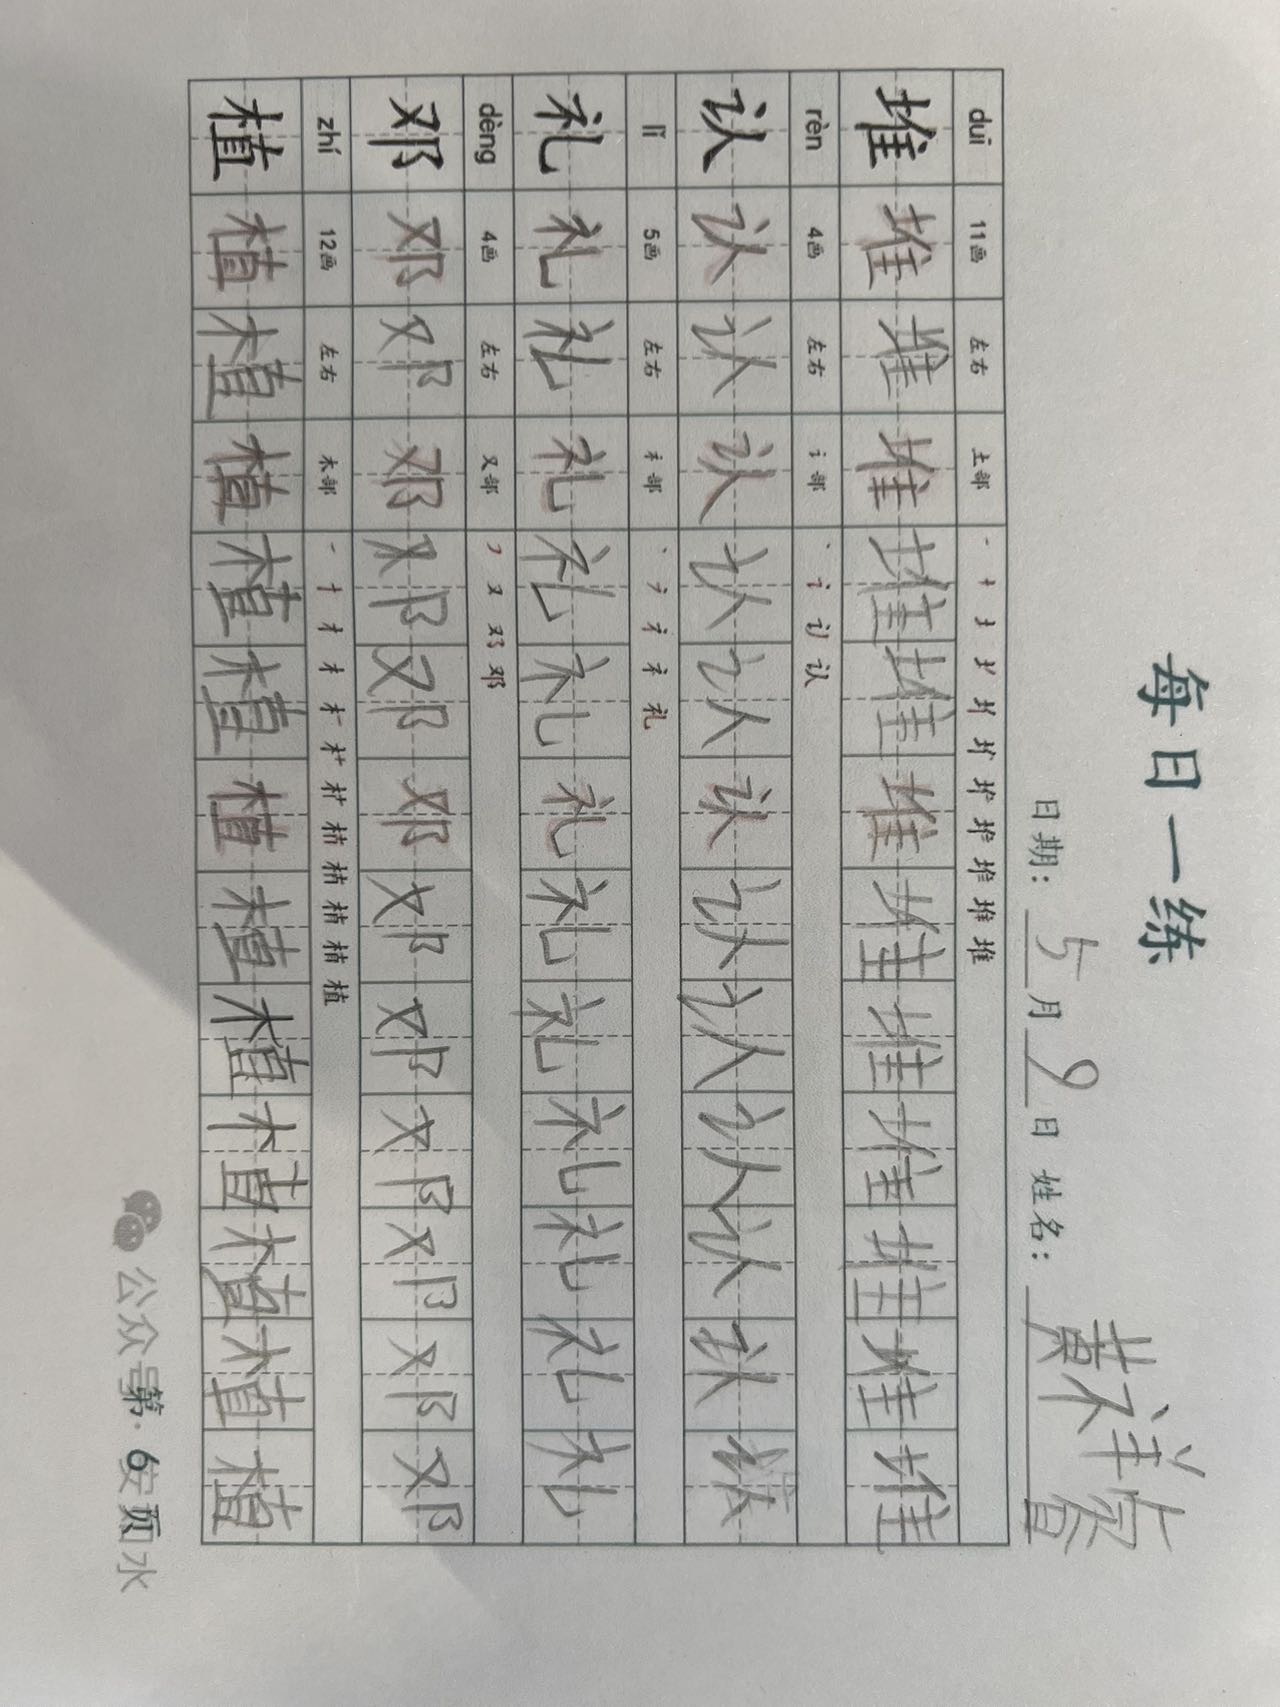 每日一练
日期：5月9日 姓名：黄祥睿
duī 11画 左右 土部 一 十 土 圵 圹 圹 圹 堆 堆 堆 堆
堆 堆 堆 堆 堆 堆 堆 堆 堆 堆 堆 堆 堆
rèn 4画 左右 讠部 丶 讠 认 认
认 认 认 认 认 认 认 认 认 认 认 认 认
lǐ 5画 左右 礻部 丶 ㇇ 礻 礻 礼
礼 礼 礼 礼 礼 礼 礼 礼 礼 礼 礼 礼 礼
dèng 4画 左右 又部 ㇇ 又 邓 邓
邓 邓 邓 邓 邓 邓 邓 邓 邓 邓 邓 邓 邓
zhí 12画 左右 木部 一 十 才 木 木 村 村 枯 枯 植 植 植
植 植 植 植 植 植 植 植 植 植 植 植 植
第 6 页